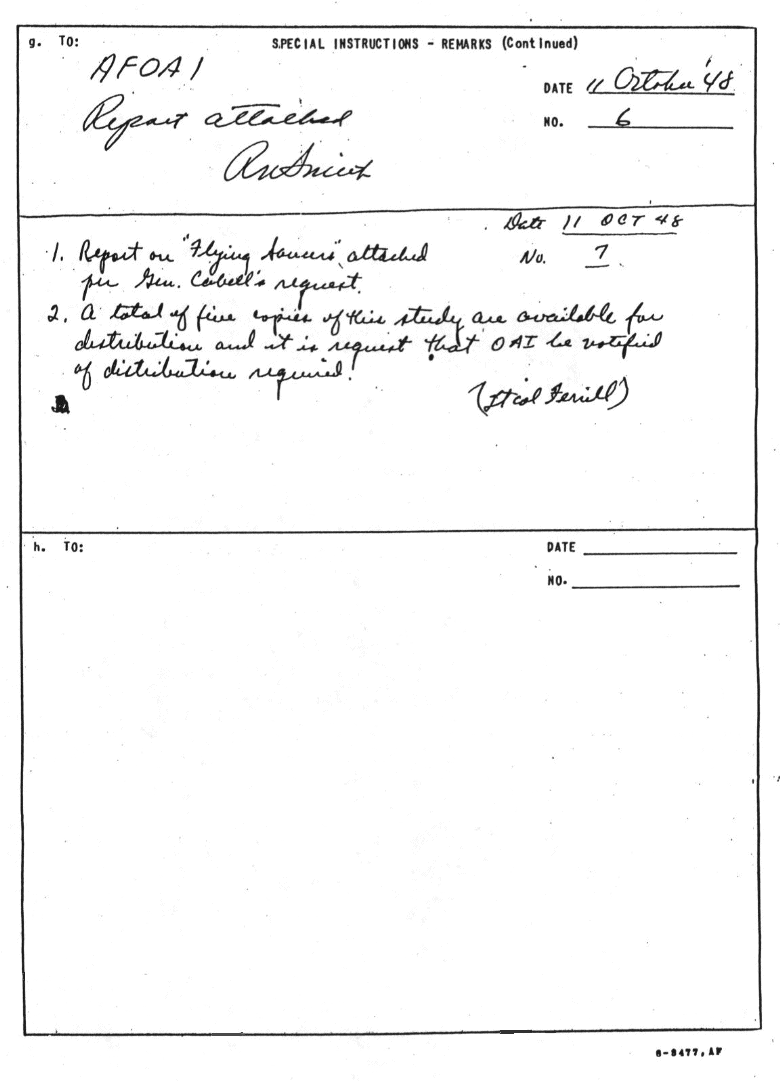 g. TO: SPECIAL INSTRUCTIONS - REMARKS (Continued)
AFOAI
DATE 11 October '48
Report attached
NO. 6
Date 11 OCT 48
1. Report on "Flying Saucers" attached
No. 7
per Gen. Cabell's request.
2. A total of five copies of this study are available for
distribution and it is request that OAI be notified
of distribution required.
(Lt Col
h. TO:
DATE
NO.
6-8477, AF